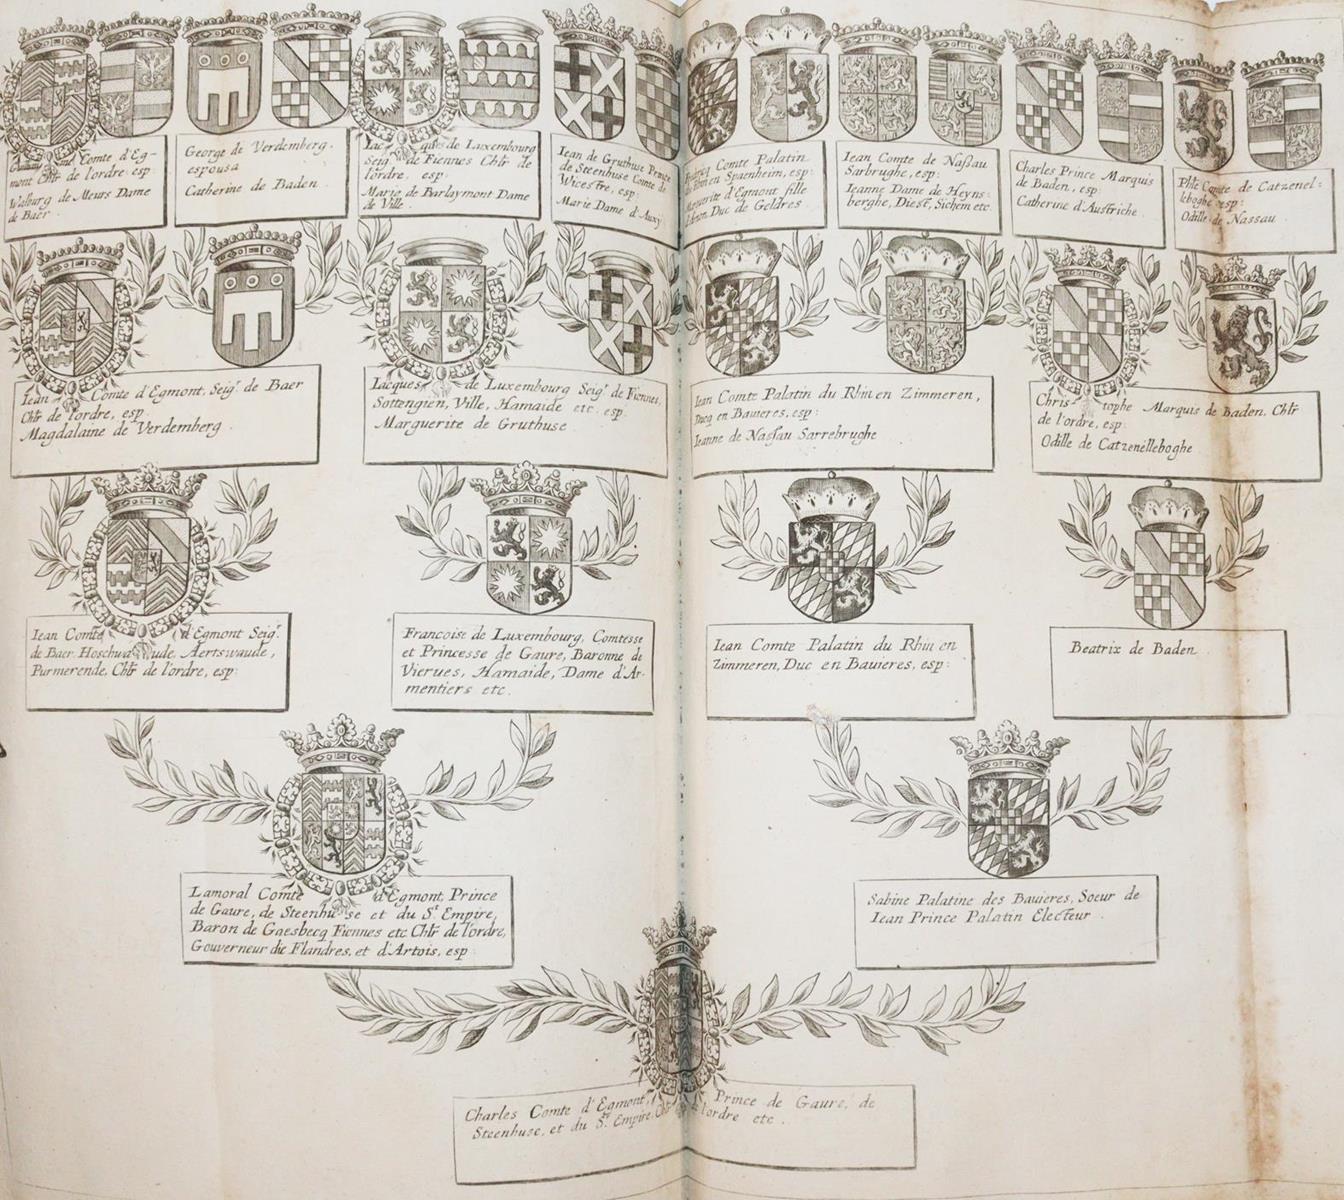 Comte d'Eg-
mont Chlr de l'ordre, esp:
Walburg de Meurs Dame
de Baer.
George de Verdemberg.
espousa
Catherine de Baden.
Iacques de Luxembourg
Seigr de Fiennes Chlr de
l'ordre, esp.
Marie de Barlaymont Dame
de Ville.
Iean de Gruthuse Prince
de Steenhuse Comte de
Wicestre, esp:
Marie Dame d'Auxy
Comte Palatin
du Rhin en Spaenheim, esp:
Marguerite d'Egmont fille
Duc de Geldres.
Iean Comte de Naßau
Sarbrughe, esp:
Ieanne Dame de Heyns-
berghe, Diest, Sichem etc.
Charles Prince Marquis
de Baden, esp:
Catherine d'Austriche.
Phle Comte de Catzenel-
leboghe esp:
Odille de Nassau.
Iean Comte d'Egmont, Seigr de Baer
Chlr de l'ordre, esp.
Magdalaine de Verdemberg.
Iacques de Luxembourg Seigr de Fiennes,
Sottengien, Ville, Hamaide etc. esp.
Marguerite de Gruthuse.
Iean Comte Palatin du Rhin en Zimmeren,
Ducq en Bauieres, esp:
Ieanne de Naßau Sarrebrughe
Christophe Marquis de Baden, Chlr
de l'ordre, esp:
Odille de Catzenelleboghe
Iean Comte d'Egmont Seigr
de Baer, Hoschwa ude, Aertswaude,
Purmerende, Chlr de l'ordre, esp:
Francoise de Luxembourg, Comtesse
et Princesse de Gaure, Baronne de
Vierues, Hamaide, Dame d'Ar-
mentiers etc.
Iean Comte Palatin du Rhin en
Zimmeren, Duc en Bauieres, esp:
Beatrix de Baden.
Lamoral Comte d'Egmont, Prince
de Gaure, de Steenhuse et du St Empire,
Baron de Gaesbecq Fiennes etc Chlr de l'ordre,
Gouverneur de Flandres, et d'Artois, esp:
Sabine Palatine des Bauieres, Soeur de
Iean Prince Palatin Electeur.
Charles Comte d'Egmont, Prince de Gaure, de
Steenhuse, et du St Empire, Chlr de l'ordre etc.